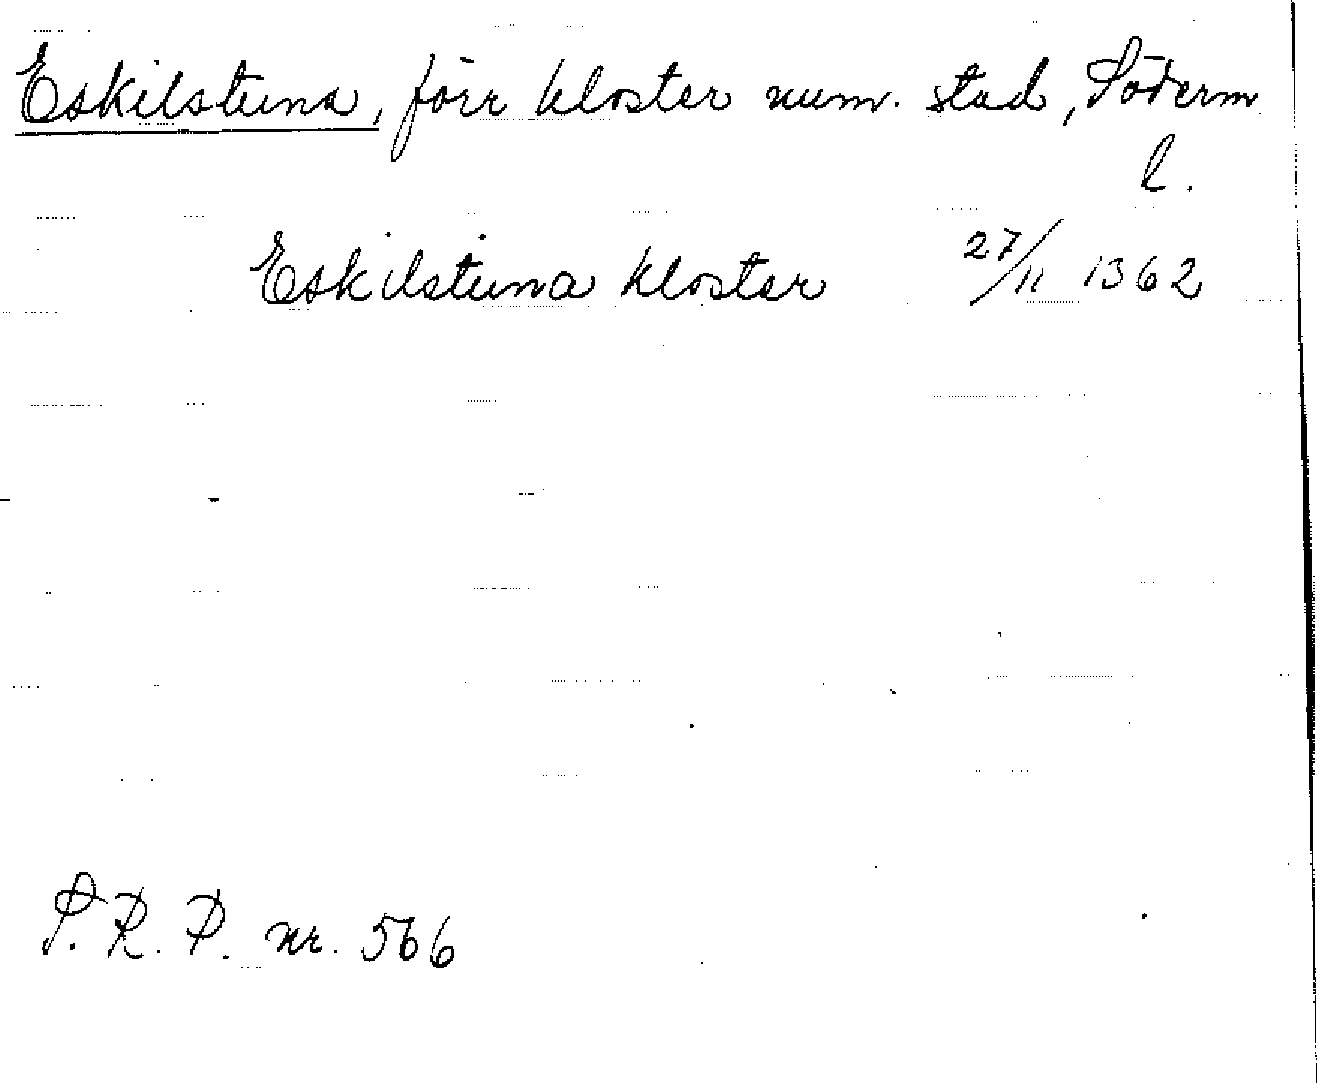 Eskilstuna, förr kloster num. stad, Söderm
l.
Eskilstuna kloster 27/11 1362
S. R. P. nr. 566